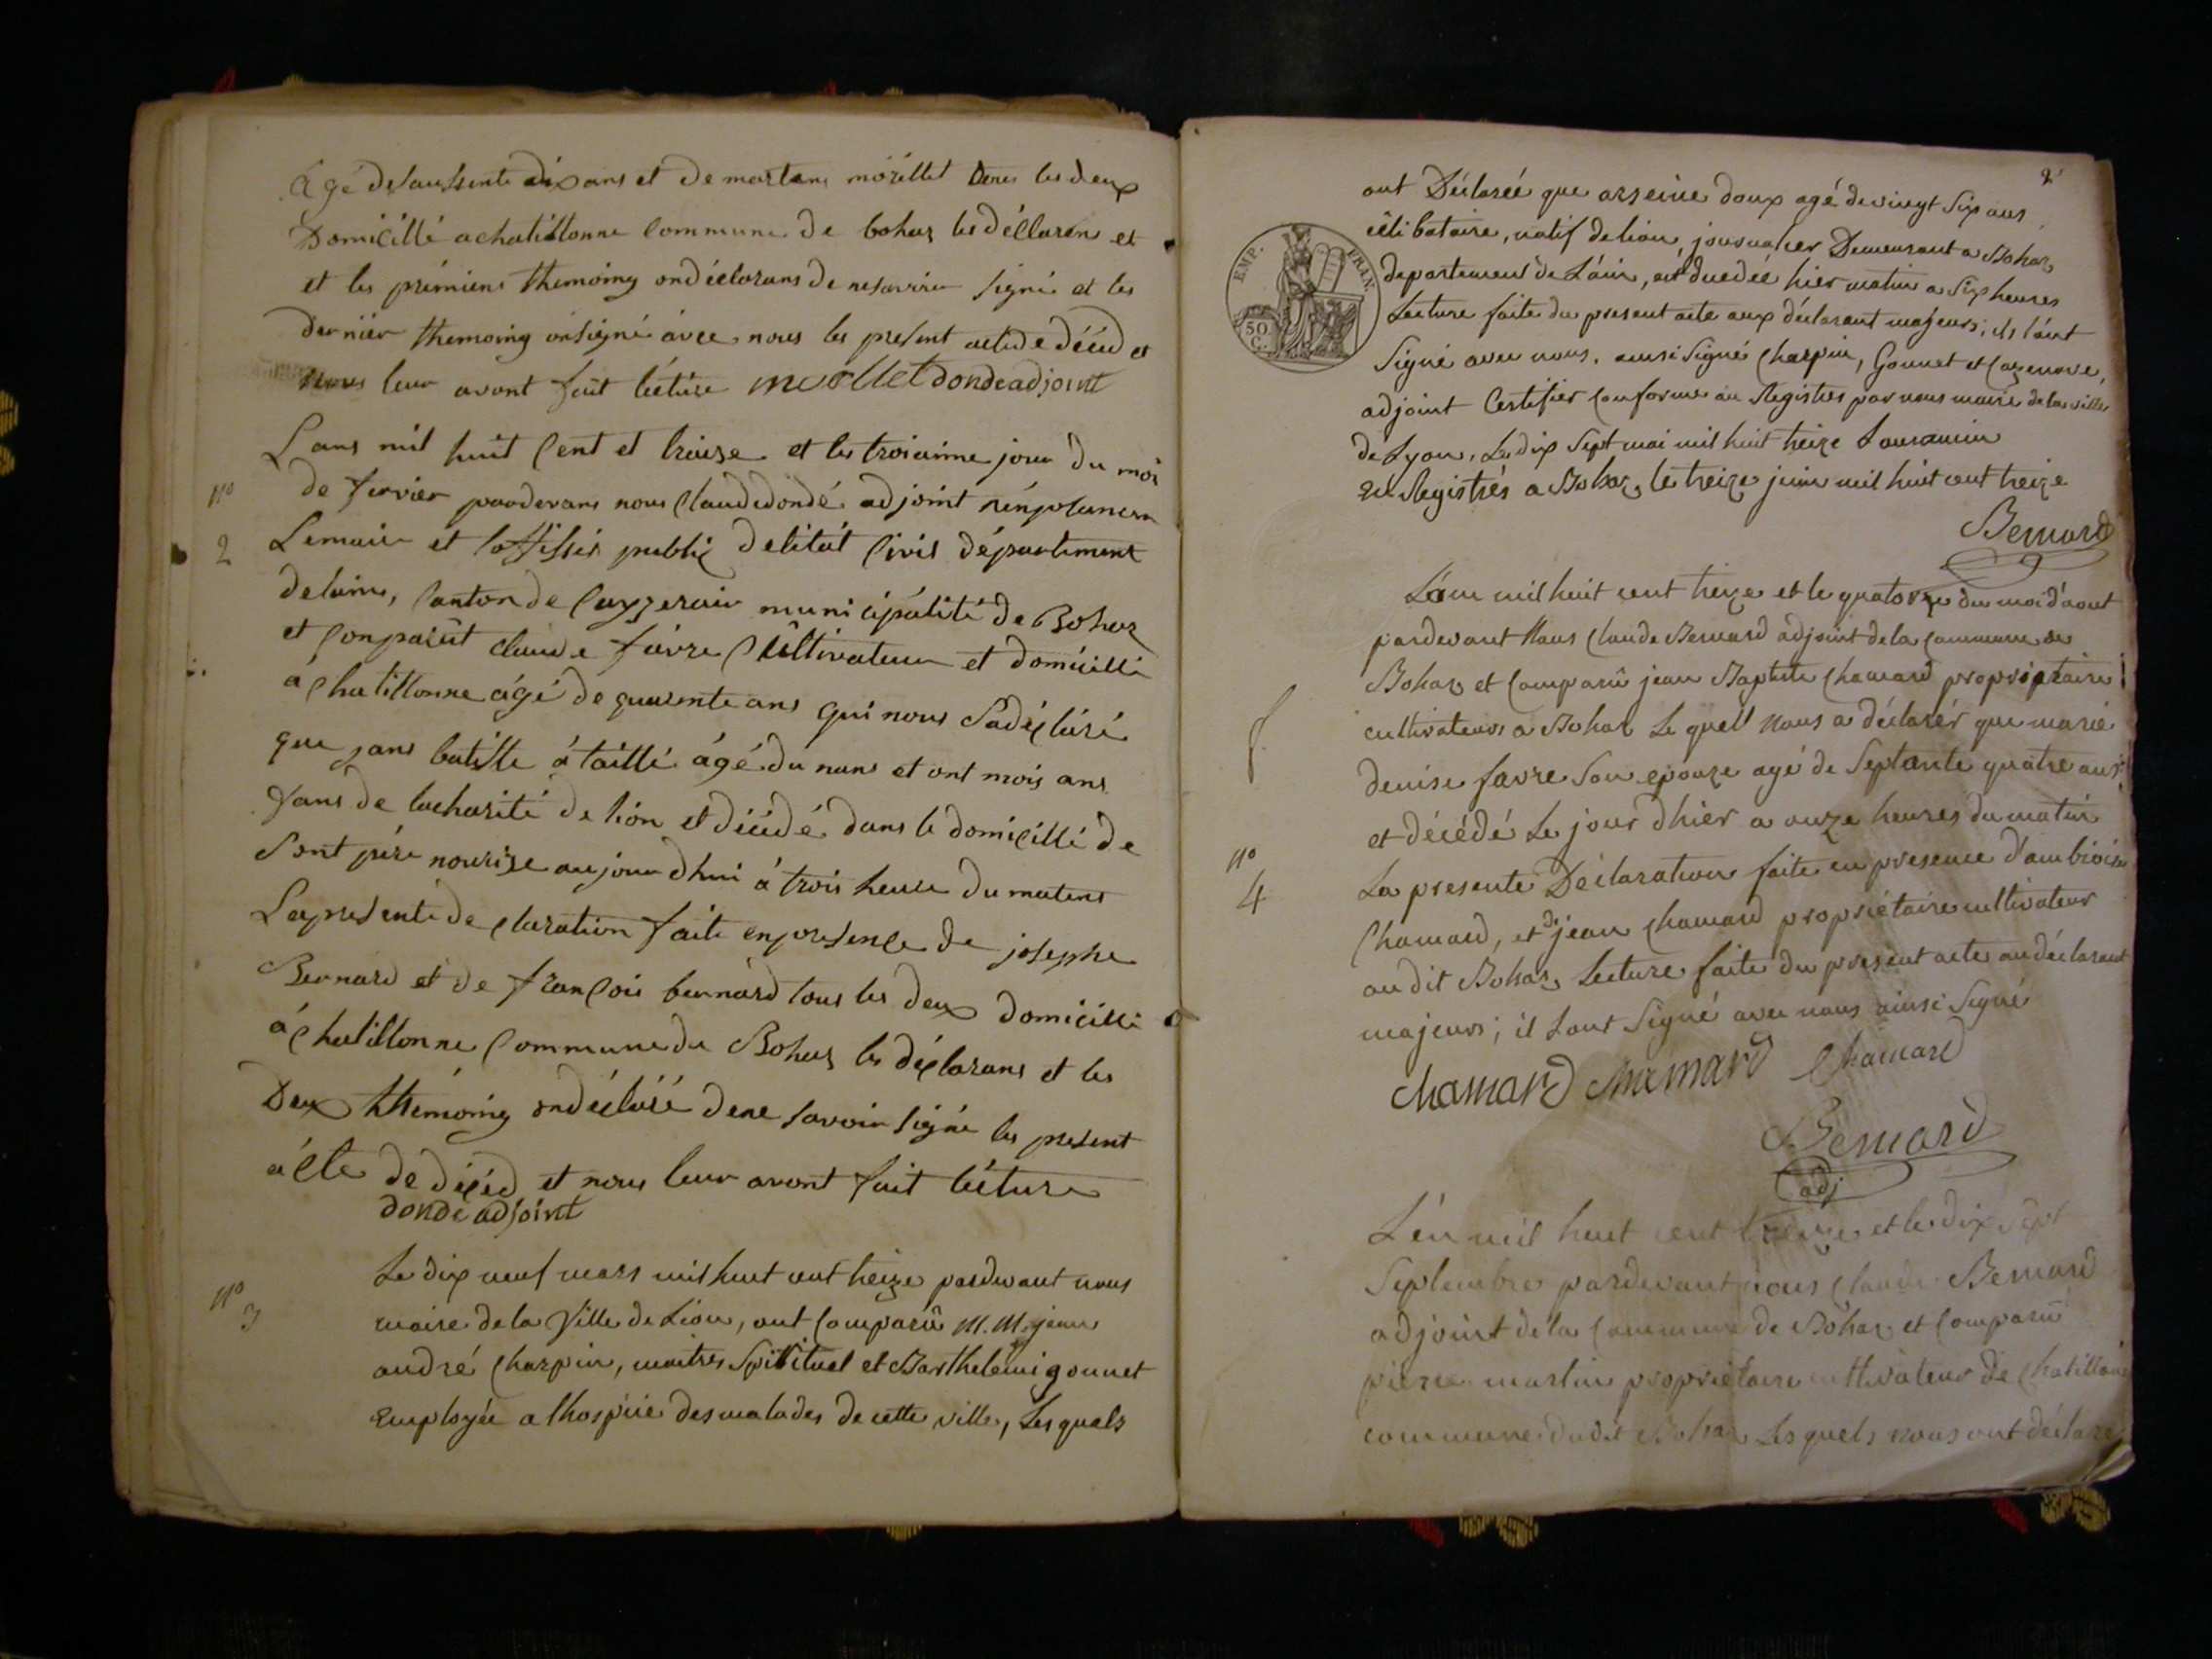 Agé de sausente dix ans et de martens moréllet tous les deux
Domicillé a chatillonne Commune de bohas les déllaren et
et les prémiens themoing ondéclarans de nesavoir signé et les
dernier themoing onsigné avec nous les present acte de décéd et
nous leur avont fait lécture morellet donde adjoint
Lans mil huit Cent et traize et les troisième jour du moi
de fevrier pardevans nous Claude dondé adjoint
n° 2
Lemaire et loffissier public de létat Civil département
delains, Canton de Ceyzeriair municipalité de Bohas
et Conparût claude faivre Cultivateur et domicillé
à Chatillonne agé de quarente ans qui nous Sadéclaré
que jans batiste
Jans de lacharité de lion et décédé dans le domicillé de
Sont père nourise aujour dhui à trois heure du matins
Lapresente declaration faite enpresence de josephe
Bernard et de françois bernard tous les deux domicillé
à Chatillonne Commune de Bohas les déclarans et les
Deux themoing ondéclaré dene savoir signé les present
àcte de décéd et nous leur avont fait lécture
donde adjoint
n° 3
Le dix neuf mars mil huit cent treize pardevant nous
maire de la Ville de Lion, ont Comparû M.M. jean
andré Charpin, maitres Spirituel et Barthelemi gonnet
Employée a lhospice des malades de cette ville, Lesquels
2
ont Déclarée que arseine doux agé de vingt Six ans
célibataire, natif de lion, journalier Demeurant a Bohas
EMP. FRAN.
50 C.
departement de L'ain, est ducdeé hier matin a Six heures
Lecture faite du present acte aux déclarant majeurs, ils l'ont
Signé avec nous. ainsi Signé Charpin, Gonnet et Cazenove,
adjoint Certifier Conforme au Registres par nous maire de la ville
de Lyon, Le dix Sept mai mil huit treize
En Registrés a Bohas le treize juin mil huit cent treize
Bernard
L'an mil huit cent treize et le quatorze du moi d'aout
pardevant Nous Claude Bernard adjoint de la Commune de
Bohas et Comparû jean Baptiste Chamard propriétaire
cultivateurs a Bohas Le quell nous a déclarér que marie
denise favre Son epouze agé de Septante quatre ans
et décédé Le jour dhier a onze heures du matin
n° 4
La presente Déclaration faite en presence d'ambroise
Chamard, et de jean Chamard propriétaire cultivateur
au dit Bohas Lecture faite du present acte au déclarant
majeurs; il Lont Signé avec nous ainsi Signé
Chamard Chamard Chamard
Bernard
adj
L'én mil huit cent treize et le dix Sept
Septembre pardevant nous Claude Bernard
adjoint de la Commune de Bohas et Comparû
pierre martin propriétaire cultivateur de Chatillon
commune dudit Bohas Lesquels nous ont déclaré